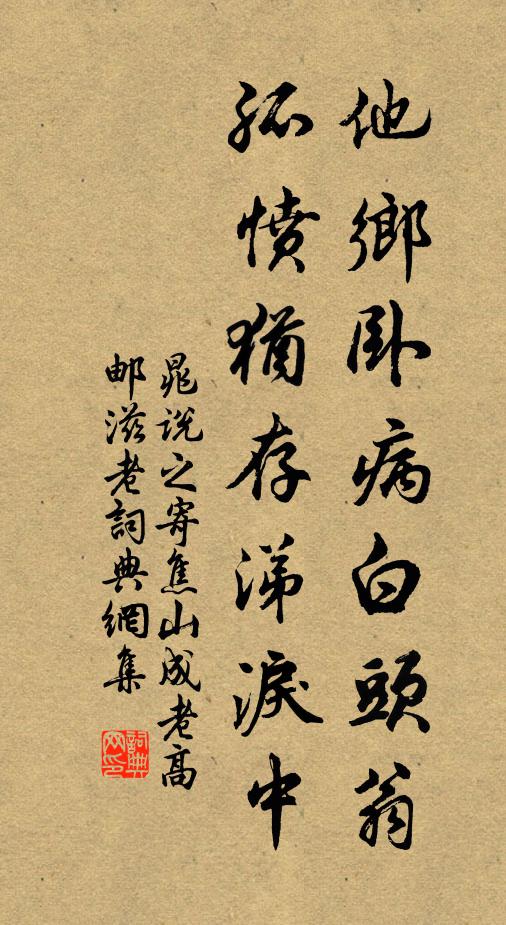 他鄉卧病白頭翁
孤憤猶存涕淚中
晁說之寄焦山成老高
邮滋老詞典網集
詞典网印